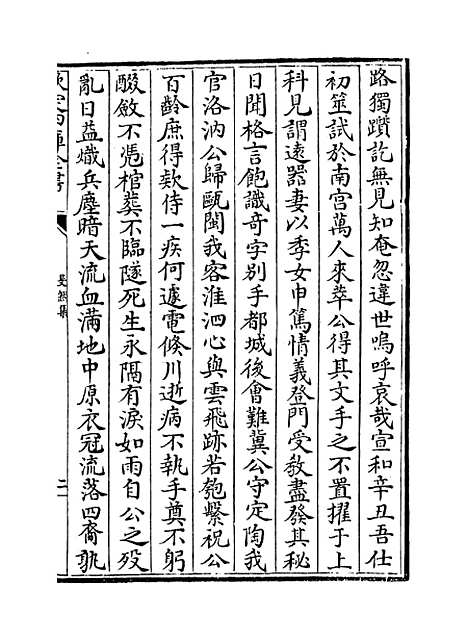 路獨躓訖無見知奄忽違世嗚呼哀哉宣和辛丑吾仕
初筮試於南宫萬人來萃公得其文手之不置擢于上
科見謂遠器妻以季女申篤情義登門受教盡發其秘
日聞格言飽識奇字别手都城後會難冀公守定陶我
官洛汭公歸甌閩我客淮泗心與雲飛跡若匏繫祝公
百齡庶得欵侍一疾何遽電倐川逝病不執手奠不躬
醊斂不慿棺葬不臨隧死生永隔有淚如雨自公之歿
亂日益熾兵塵暗天流血滿地中原衣冠流落四裔孰
欽定四庫全書
斐然集